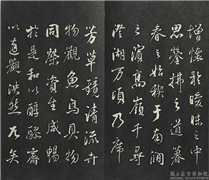 增懷於曖昧之中
思縈拂之道暮
春之始禊于南澗
之濱高嶺千尋
澄湖萬頃乃席
芳草鏡清流覽卉
物觀魚鳥具物
同榮資生咸暢
於是和以醇醪齊
以達觀決然兀矣